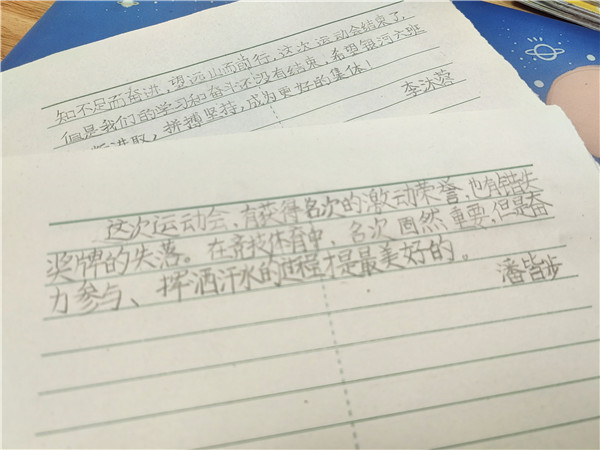 知不尽而奋进，望远山而前行，这次运动会结束了，
但是我们的学习和奋斗还没有结束，希望银河六班
进取，拼搏坚持，成为更好的集体！
李沐蓉
这次运动会，有获得名次的激动荣誉，也有错失
奖牌的失落。在竞技体育中，名次固然重要，但是奋
力参与、挥洒汗水的过程才是最美好的。
潘皆